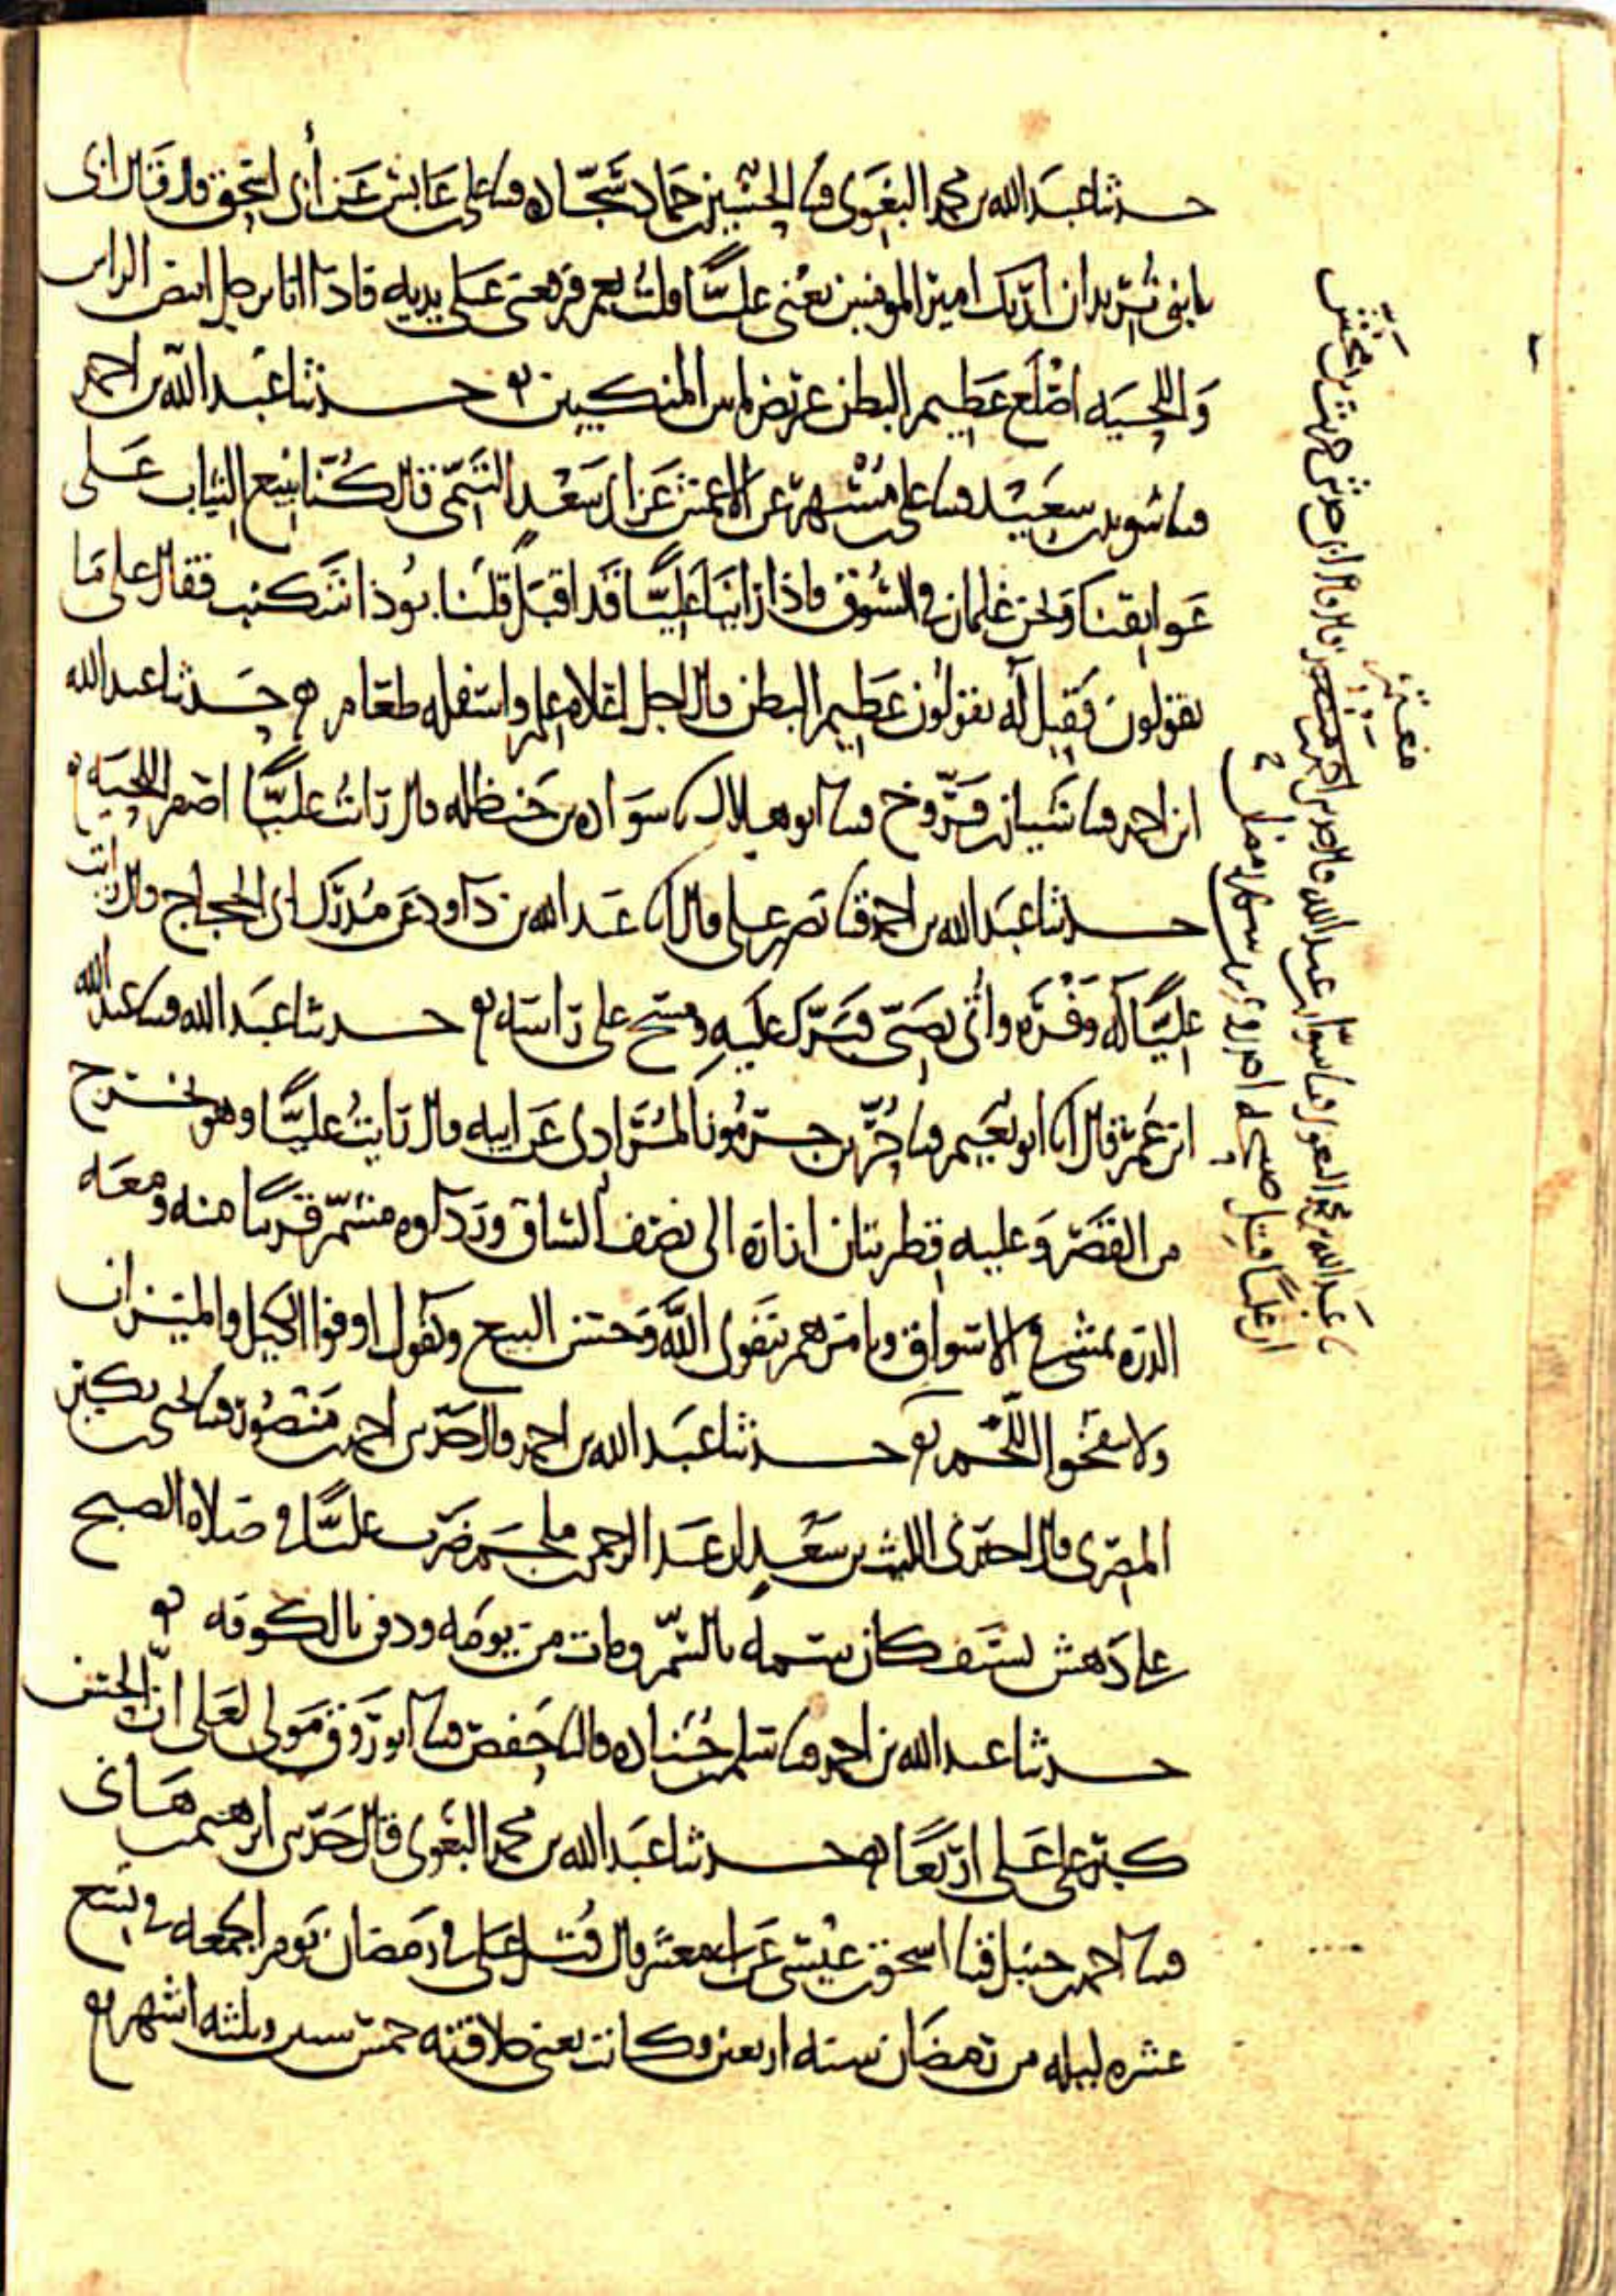 حدثنا عبد الله بن محمد البغوي قثنا الحسين بن حماد سجاده قثنا علي بن عابس عن أبي إسحق قال قال أبي
يا بني تريد ان اريك امير المومنين يعني عليا قلت نعم فرفعني على يديه فاذا انا برجل ابيض الراس
واللحيه اصلع عظيم البطن عريض ما بين المنكبين حدثنا عبد الله بن احمد
قثنا سويد بن سعيد قثنا علي بن مسهر عن الاعمش عن ابي سعد التيمي قال كنا نبيع الثياب على
عواتقنا ونحن غلمان في السوق فاذا راينا عليا قد اقبل قلنا بوذا شكنب فقال علي ما
يقولون فقيل له يقولون عظيم البطن قال اجل اعلاه علم واسفله طعام حدثنا عبد الله
ابن احمد قثنا شيبان بن فروخ قثنا ابو هلال نا سواده بن حنظله قال رايت عليا اصفر اللحيه
حدثنا عبد الله بن احمد قثنا نصر بن علي قال انا عبد الله بن داود عن مدرك ابي الحجاج قال رايت
عليا له وفره واتي بصبي فبرك عليه ومسح على راسه حدثنا عبد الله قثنا عبد الله
ابن عمر قال انا ابو نعيم قثنا حر بن جرموز المرادي عن ابيه قال رايت عليا وهو يخرج
من القصر وعليه قطريتان ازاره الى نصف الساق ورداوه مشمر قريبا منه ومعه
الدره يمشي في الاسواق ويامرهم بتقوى الله وحسن البيع ويقول اوفوا الكيل والميزان
ولا تنفخوا اللحم حدثنا عبد الله بن احمد قال حدثني احمد بن منصور قثنا يحيى بن بكير
المصري قال اخبرني الليث بن سعد ان عبد الرحمن بن ملجم ضرب عليا في صلاه الصبح
على دهش بسيف كان سمه بالسم ومات من يومه ودفن بالكوفه
حدثنا عبد الله بن احمد قثنا سلم بن جناده قال نا حفص قثنا ابو روق مولى لعلي ان الحسن
كبر على علي اربعا حدثنا عبد الله بن محمد البغوي قال حدثني ابرهيم بن هاني
قثنا احمد بن حنبل قثنا اسحق بن عيسى عن ابي معشر قال قتل علي في رمضان يوم الجمعه في تسع
عشره ليله من رمضان سنه اربعين وكانت يعني خلافته خمس سنين وثلثه اشهر
نا عبد الله بن محمد البغوي قثنا سوار بن عبد الله قال
معتمر
ان عليا قتل صبيحه احدى وعشرين من شهر رمضان